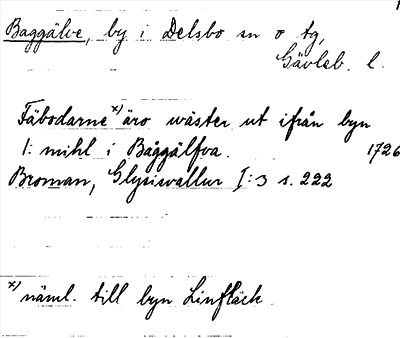 Baggälve, by i Delsbo sn o tg,
Gävleb. l.
Fäbodarne x) äro wäster ut ifrån byn
1: mihl i Baggälfva. 1726
Broman, Glysiswallur I:3 s. 222
x) näml. till byn Linfläck.